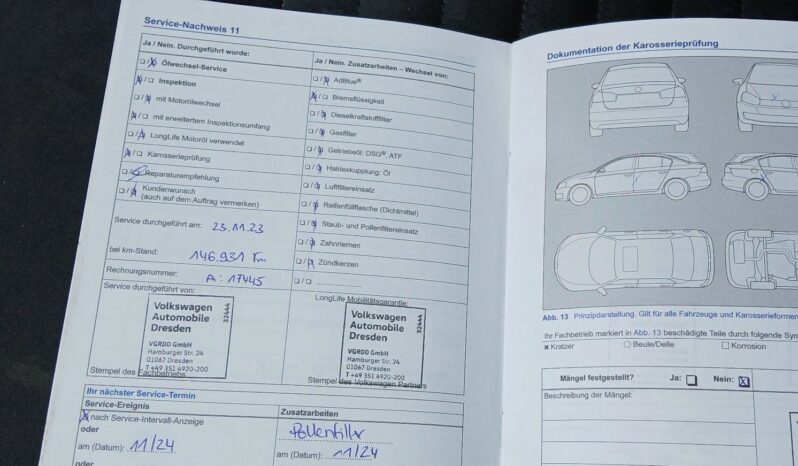 Service-Nachweis 11
Ja / Nein. Durchgeführt wurde:
Ölwechsel-Service
Inspektion
mit Motorölwechsel
mit erweitertem Inspektionsumfang
LongLife Motoröl verwendet
Karosserieprüfung
Reparaturempfehlung
Kundenwunsch
(auch auf dem Auftrag vermerken)
Ja / Nein. Zusatzarbeiten – Wechsel von:
AdBlue®
Bremsflüssigkeit
Dieselkraftstofffilter
Gasfilter
Getriebeöl: DSG®, ATF
Haldexkupplung: Öl
Luftfiltereinsatz
Reifenfüllflasche (Dichtmittel)
Staub- und Pollenfiltereinsatz
Zahnriemen
Zündkerzen
Service durchgeführt am: 23.11.23
bei km-Stand: 146.931 km
Rechnungsnummer: A: 17445
Service durchgeführt von:
Volkswagen
Automobile
Dresden
VGRDD GmbH
Hamburger Str. 24
01067 Dresden
T +49 351 4920-200
32444
Stempel des Fachbetriebs
LongLife Mobilitätsgarantie:
Volkswagen
Automobile
Dresden
VGRDD GmbH
Hamburger Str. 24
01067 Dresden
T +49 351 4920-200
32444
Stempel des Volkswagen Partners
Ihr nächster Service-Termin
Service-Ereignis
nach Service-Intervall-Anzeige
oder
am (Datum): 11/24
oder
Zusatzarbeiten
Pollenfilter
am (Datum): 11/24
Dokumentation der Karosserieprüfung
Abb. 13 Prinzipdarstellung: Gilt für alle Fahrzeuge und Karosserieformen
Ihr Fachbetrieb markiert in Abb. 13 beschädigte Teile durch folgende Sym
x Kratzer
O Beule/Delle
Korrosion
Mängel festgestellt? Ja: Nein: X
Beschreibung der Mängel: